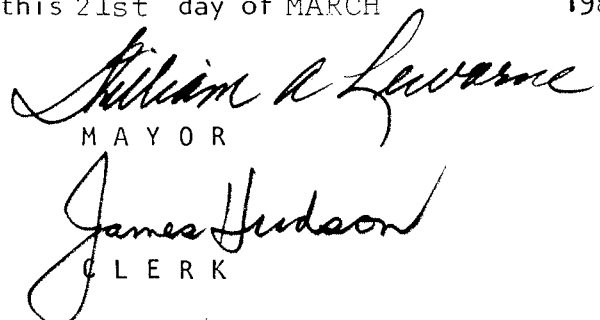 this 21st day of MARCH 198
William A Lewarne
MAYOR
James Hudson
CLERK